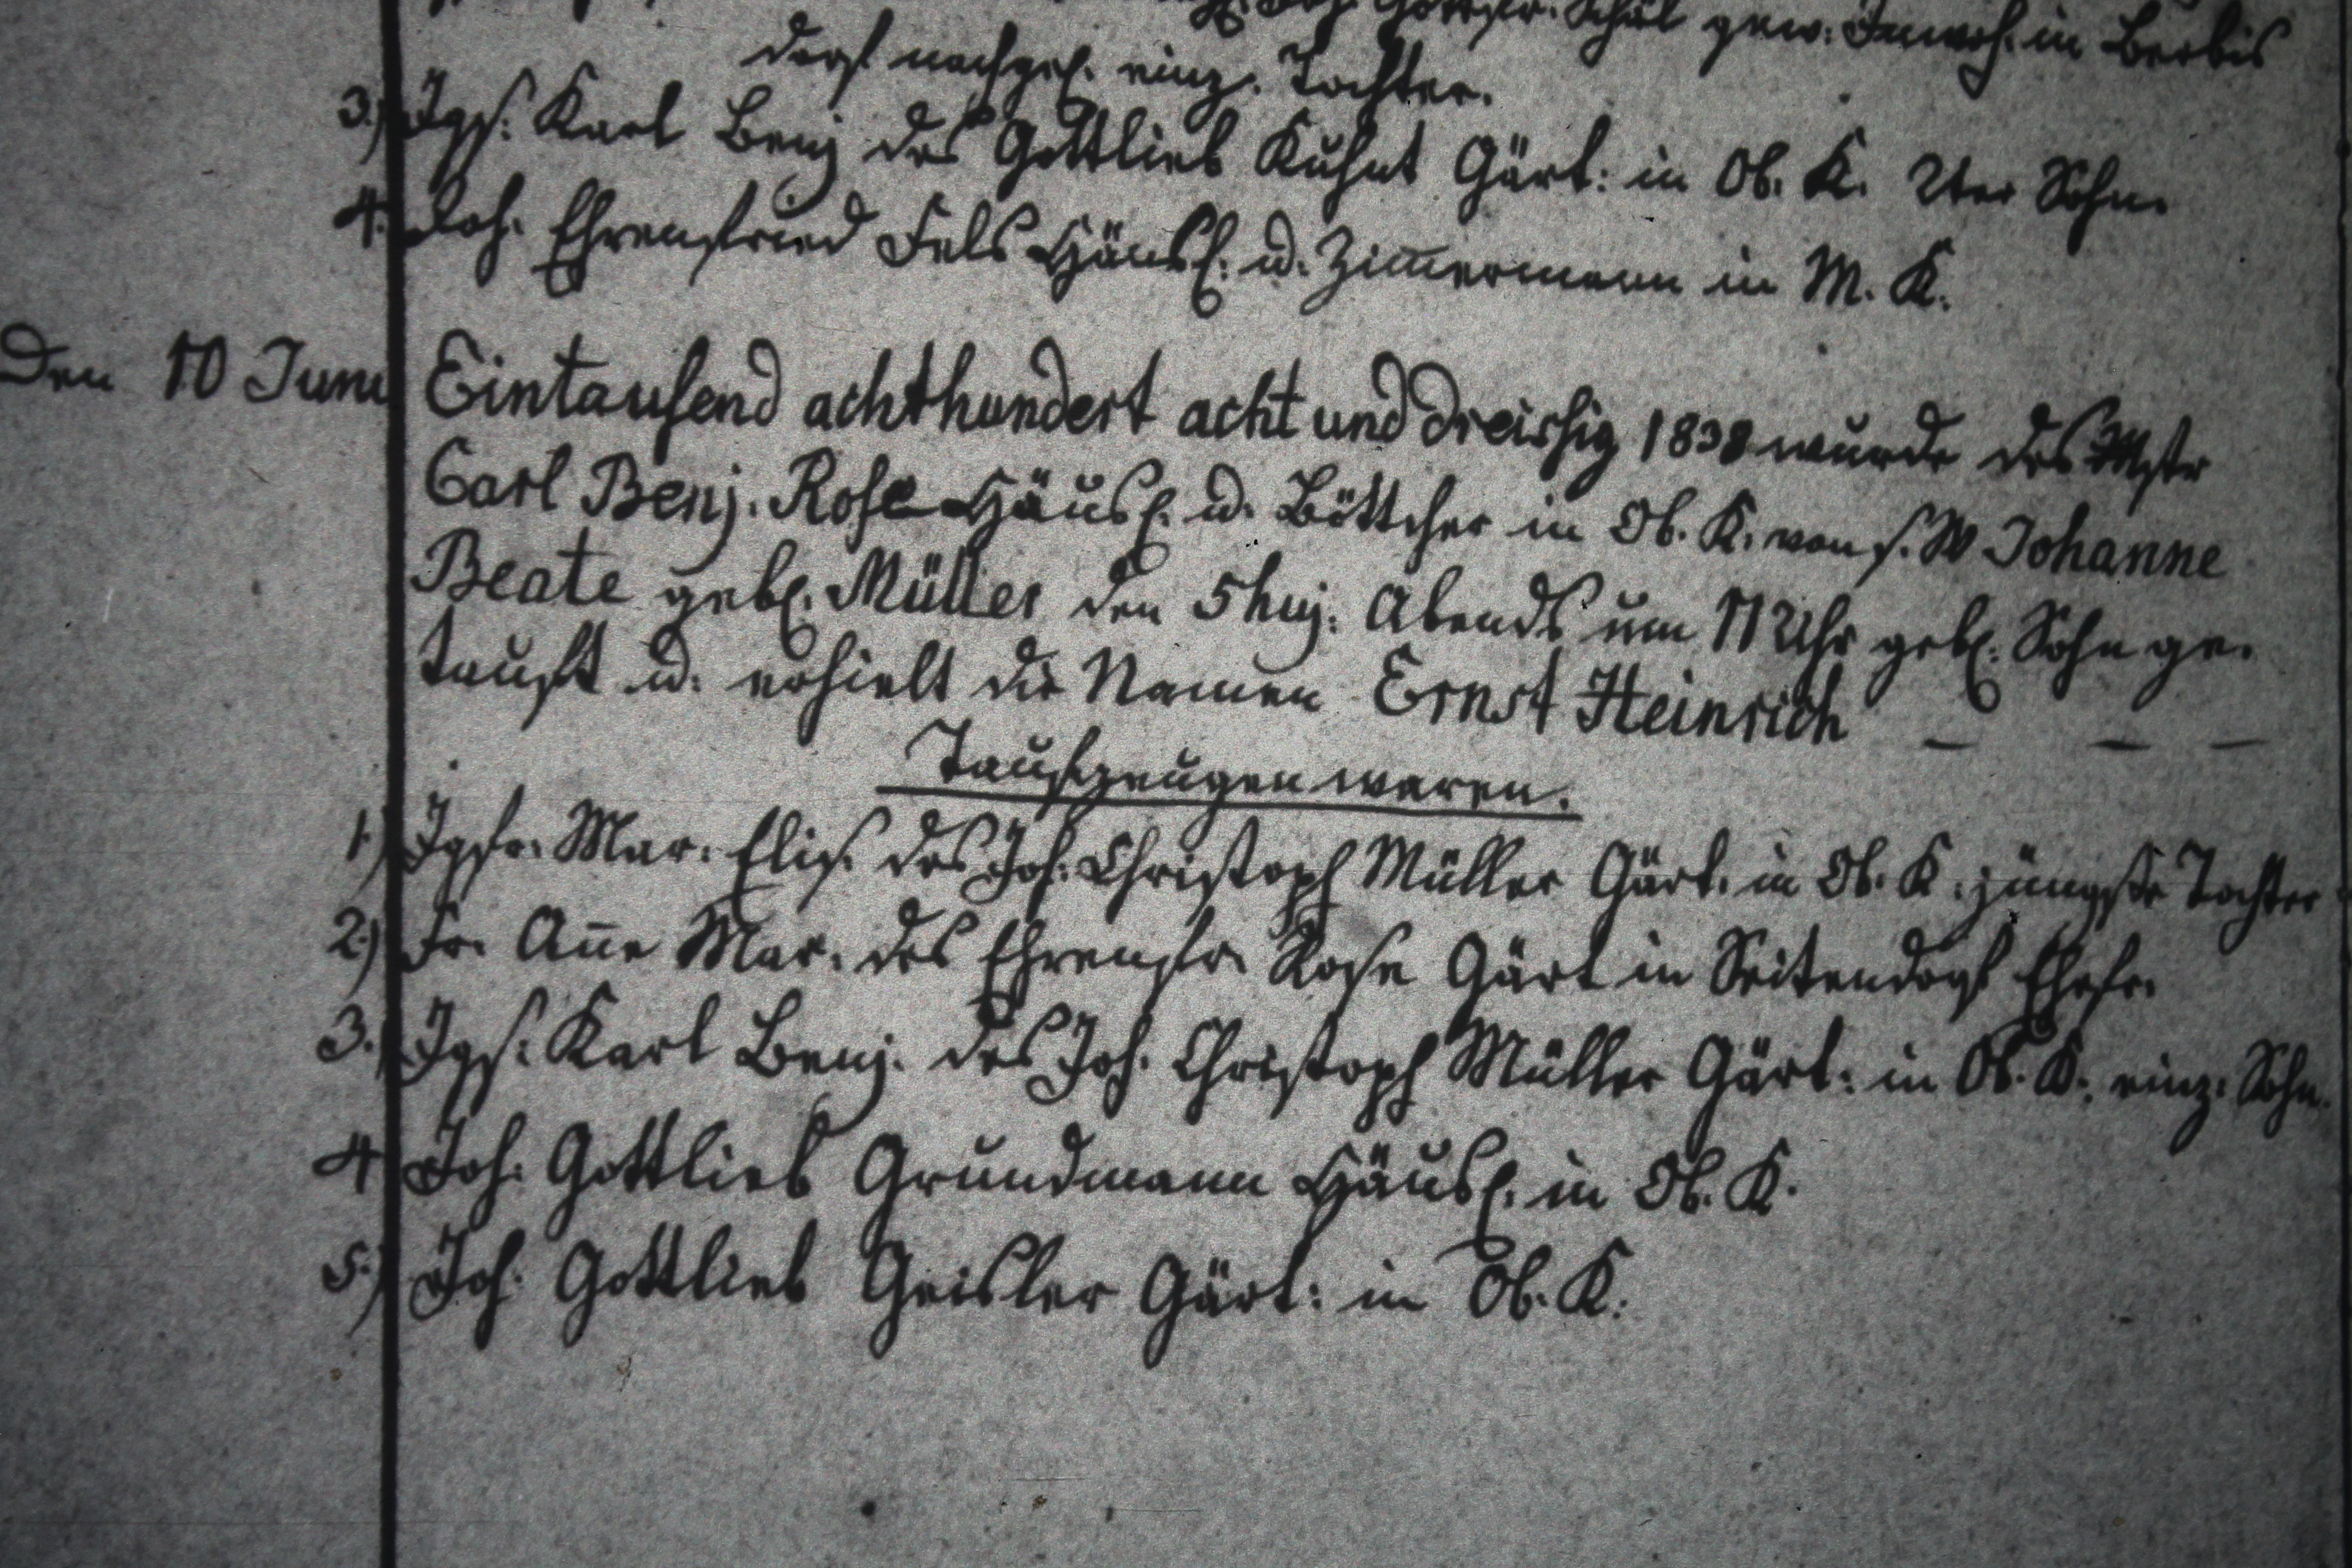 Joh. Gottfr. Schäl gew. Inwoh. in Berbis
dorf nachgel. einz. Tochter.
3.) Jgs. Karl Benj des Gottlieb Kuhnt Gärt: in Ob. K. 2ter Sohn.
4. Joh. Ehrenfried Fels Häusl. u. Zim̅ermann in M. K.
Den 10 Juni Eintausend achthundert acht und dreissig 1838 wurde des Mstr
Carl Benj. Rose Häusl. u. Böttcher in Ob. K. von s. W Johanne
Beate gebl. Müller den 5 huj: Abends um 11 Uhr gebl. Sohn ge-
tauft u. erhielt die Namen Ernst Heinrich — — —
Taufzeugen waren.
1.) Jgfr. Mar. Elis. des Joh. Christoph Müller Gärt. in Ob. K. jüngste Tochter
2.) Fr. An̅e Mar. des Ehrenfr. Rose Gärt in Seitendorf Ehefr.
3.) Jgs. Karl Benj. des Joh. Christoph Müller Gärt: in Ob. K. einz. Sohn.
4 Joh. Gottlieb Grundmann Häusl. in Ob. K.
5.) Joh. Gottlieb Geisler Gärt: in Ob. K.